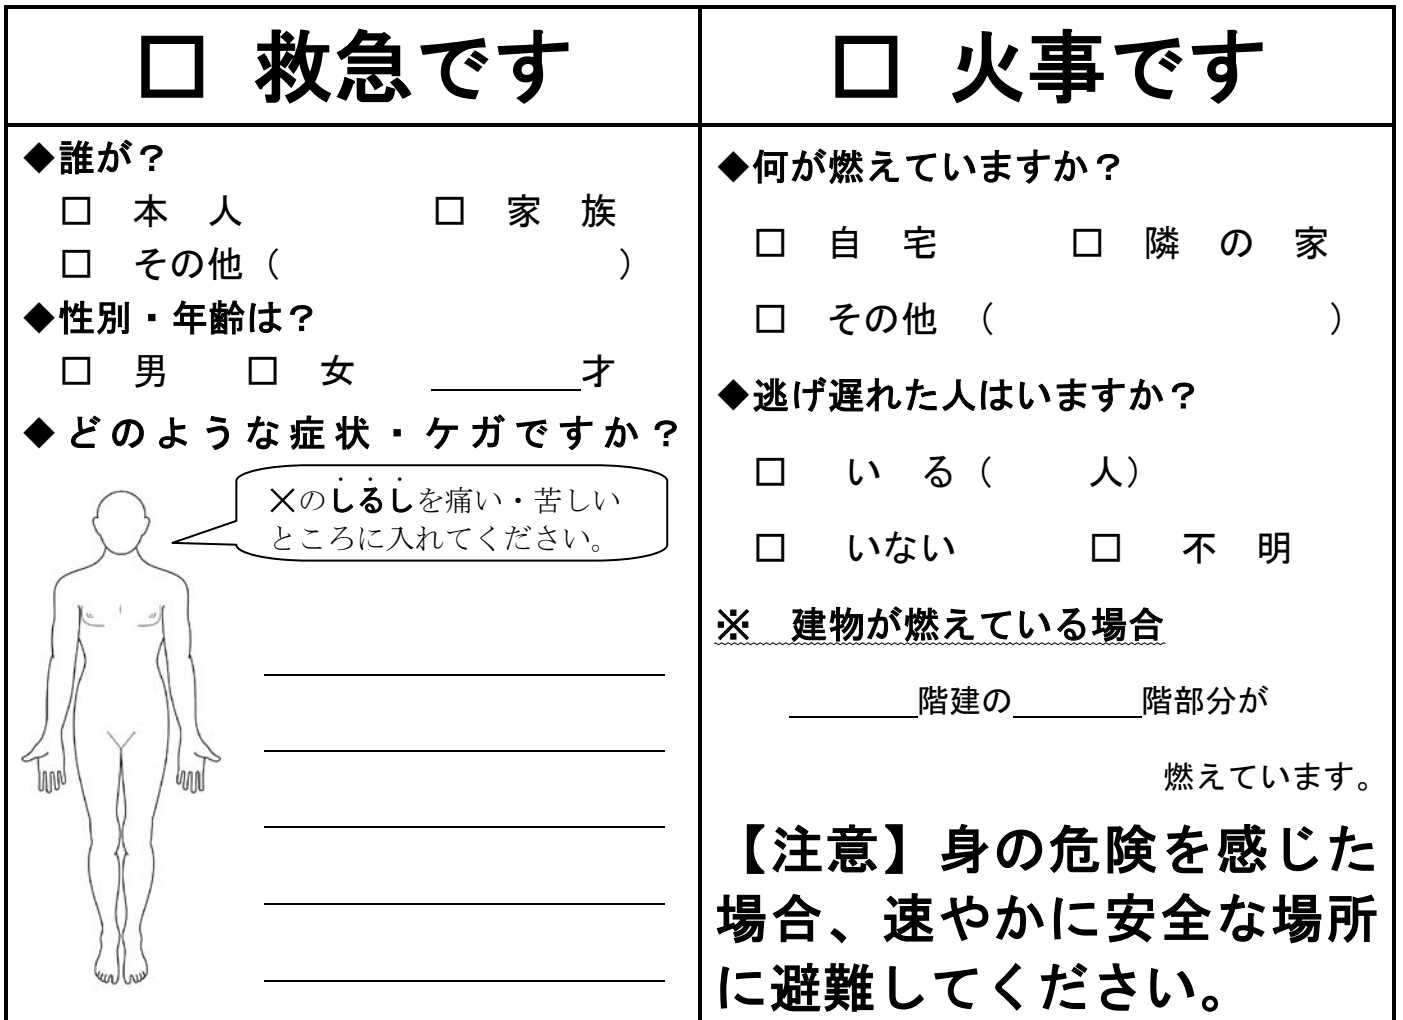 □ 救急です
◆誰が？
□ 本 人 □ 家 族
□ その他（ ）
◆性別・年齢は？
□ 男 □ 女 ＿＿＿＿才
◆どのような症状・ケガですか？
×のしるしを痛い・苦しい
ところに入れてください。
□ 火事です
◆何が燃えていますか？
□ 自 宅 □ 隣 の 家
□ その他 （ ）
◆逃げ遅れた人はいますか？
□ い る（ 人）
□ いない □ 不 明
※ 建物が燃えている場合
＿＿＿＿階建の＿＿＿＿階部分が
燃えています。
【注意】身の危険を感じた
場合、速やかに安全な場所
に避難してください。